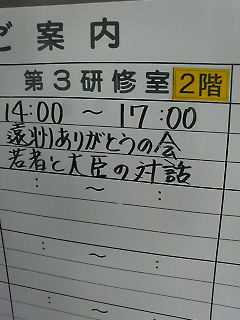 ご案内
第3研修室 2階
14:00 ～ 17:00
遠州ありがとうの会
若者と大臣の対話
: ～ :
: ～ :
: ～ :